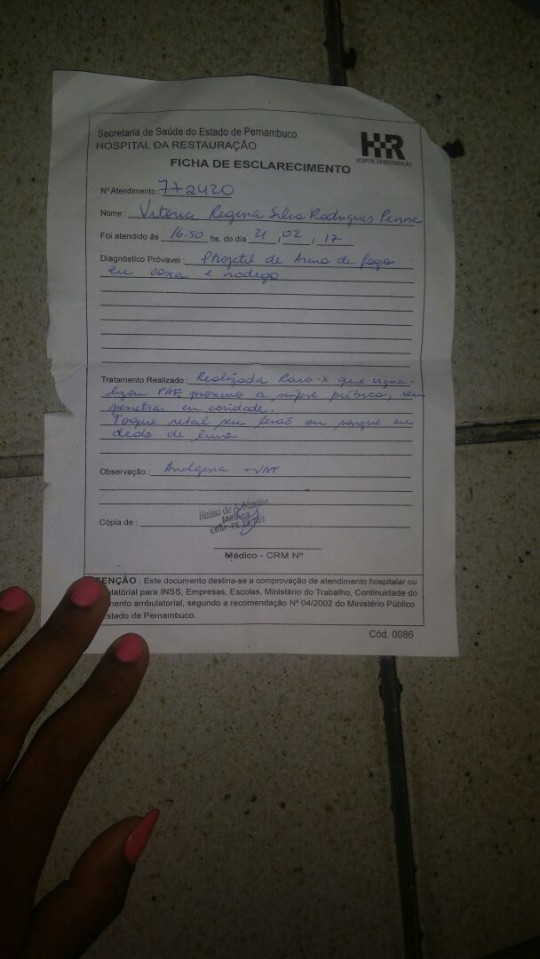 Secretaria de Saúde do Estado de Pernambuco
HOSPITAL DA RESTAURAÇÃO
HR
HOSPITAL DA RESTAURAÇÃO
FICHA DE ESCLARECIMENTO
Nº Atendimento : 772420
Nome : Vitória Regina Silva Rodrigues Penna
Foi atendido ás 16:50 hs. do dia 21 , 02 , 17
Diagnóstico Próvavel : Projetil de Arma de fogo
em coxa e nadega
Tratamento Realizado : Realizada Raio-X que visua-
lizou PAF próximo a sínfise púbica, sem
penetrar em cavidade.
Toque retal sem lesão ou sangue em
dedo de luva
Observação : Analgesia + VAT
Cópia de :
Médica
Médico - CRM Nº
TENÇÃO : Este documento destina-se a comprovação de atendimento hospitalar ou
latórial para INSS, Empresas, Escolas, Ministério do Trabalho, Continuidade do
mento ambulatorial, segundo a recomendação Nº 04/2002 do Ministério Público
Estado de Pernambuco.
Cód. 0086